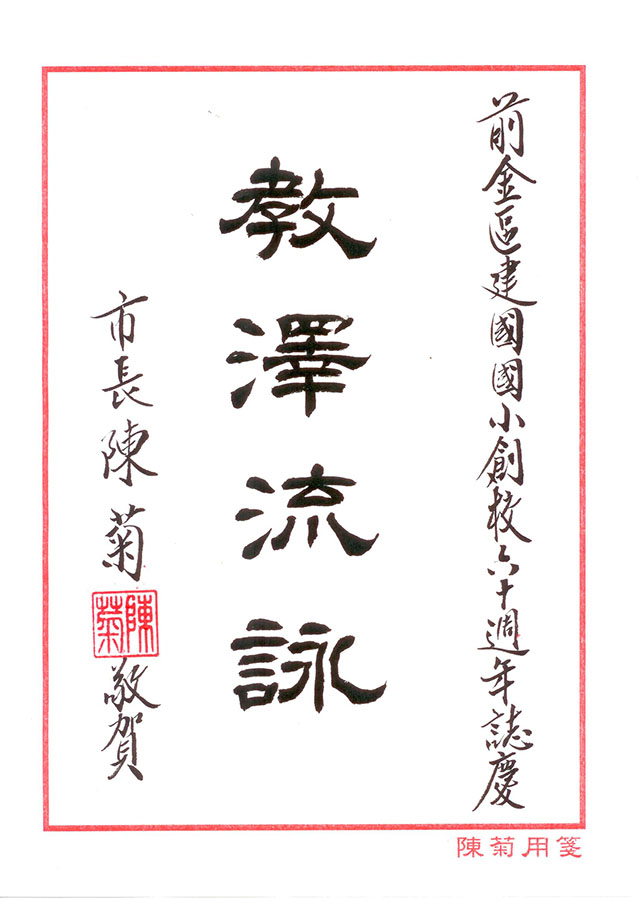 前金區建國國小創校六十週年誌慶
教澤流詠
市長陳菊
陳菊
敬賀
陳菊用箋